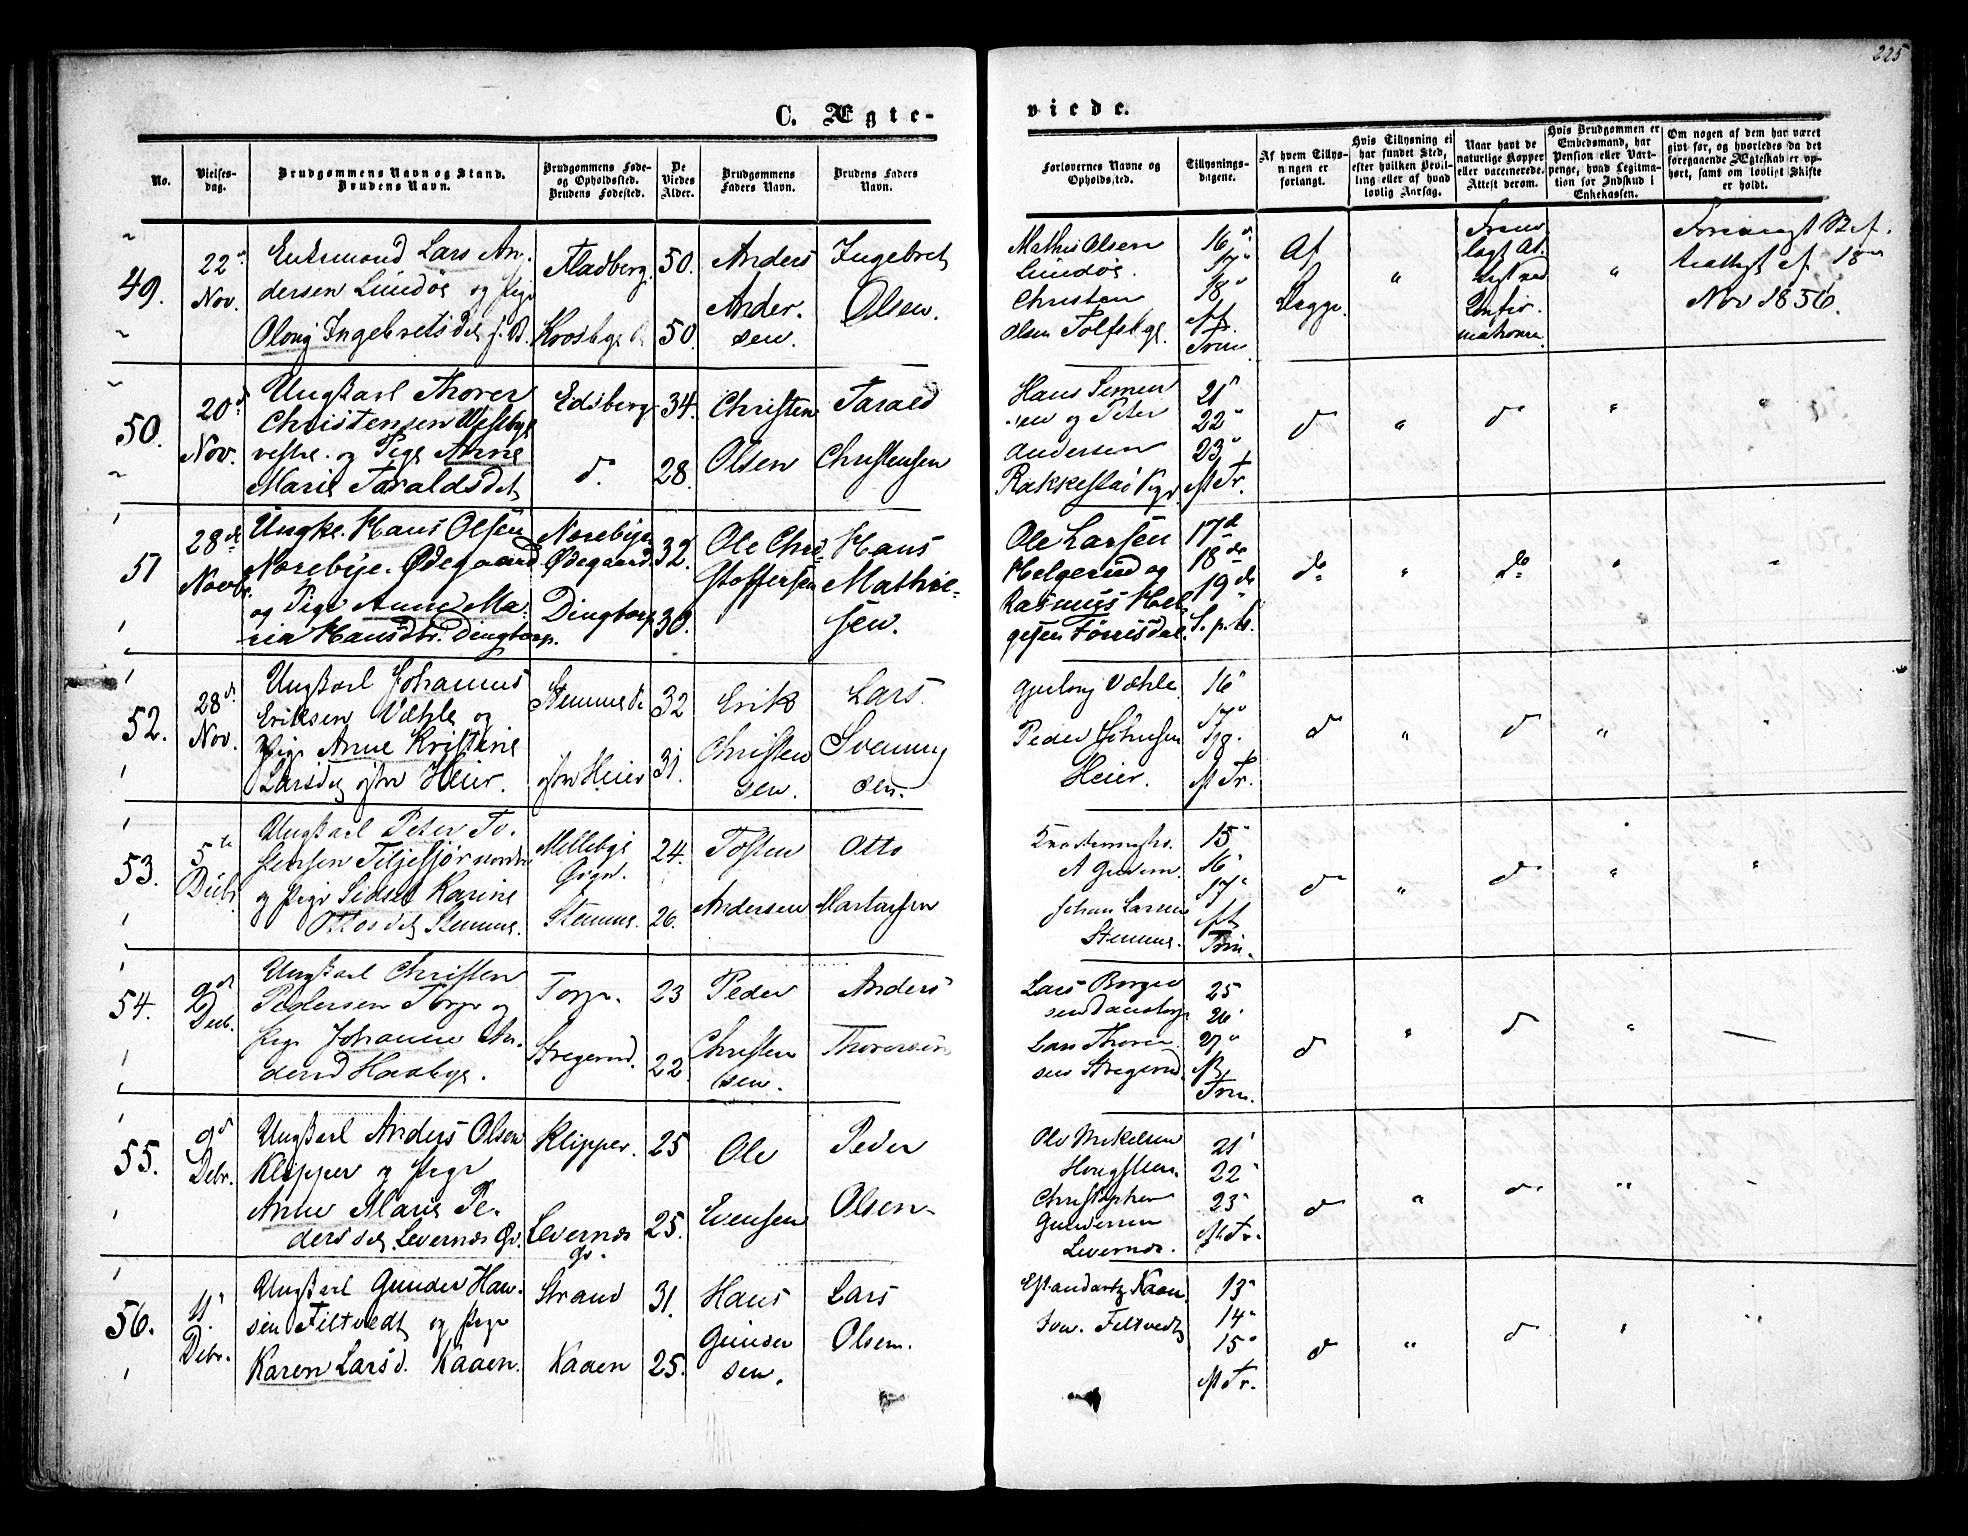 225
C. Ægte-
viede.
No.
Vielses-
dag.
Brudgommens Navn og Stand.
Brudens Navn.
Brudgommens Føde-
og Opholdssted.
Brudens Fødested.
De
Viedes
Alder.
Brudgommens
Faders Navn.
Brudens Faders
Navn.
Forlovernes Navne og
Opholdssted.
Tillysnings-
dagene.
Af hvem Tillys-
ningen er
forlangt.
Hvis Tillysning ei
har fundet Sted,
efter hvilken Bevil-
ling eller af hvad
lovlig Aarsag.
Naar havt de
naturlige Kopper
eller vaccinerede.
Attest derom.
Hvis Brudgommen er
Embedsmand, har
Pension eller Vart-
penge, hvad Legitima-
tion for Indskud i
Enkekassen.
Om nogen af dem har været
gift før, og hvorledes da det
foregaaende Ægteskab er op-
hørt, samt om lovligt Skifte
er holdt.
49.
22
Nov.
Enkemand Lars An-
dersen Lundøe og Pige
Oloug Ingebretsdet
Fladberg.
50.
50.
Anders
Ander-
sen.
Ingebret
Olsen.
Mathis Olsen
Lundøe.
Christen
Olsen
16
17
18
Af
Begge.
Nov 1856.
50.
20
Nov.
Ungkarl Thorer
Christensen Westbye
vestre. og Pige Anne
Marie Taraldsdet
Edsberg
d.
34.
28.
Christen
Olsen
Tarald
Christensen
Hans Simen
sen og Peter
Andersen
Rakkestad
21
22
23
d
d
51
28de
Novbr
Ungk. Hans Olsen
Norebye. Ødegaard
og Pige Anne Ma-
ria Hansdtr. Dingtorp.
Norebye
Ødegaard
Dingtorp
32.
30.
Ole Chri-
stoffersen
Hans
Mathie-
sen.
Ole Larsen
Helgerud og
Rasmus Hel
gesen
17de
18de
19de
do
do
52.
28
Nov.
Ungkarl Johannes
Eriksen Væhle og
Pige Anne Kristine
Larsdet østre Heier.
østre Heier
32
31.
Erik
Christen
sen.
Lars
Svenning
sen.
Væhle
Peder Johnsen
Heier.
16
17
18.
d
d
53.
5te
Debr
Ungkarl Peter To-
stensen
og Pige Sidsel Karine
Ottosdet Stemme.
Mellebye
Stemme.
24.
26.
Tosten
Andersen
Otto
Martinsen
Johan Larsen
Stemme.
15
16
17
d
d
54.
9
Decb.
Ungkarl Christen
Pedersen Torp og
Pige Johanne An-
dersd
Torp.
Stregerud.
23
22
Peder
Christen
sen.
Anders
Thoresen
Lars Borger
sen
Lars Thore
sen Stregerud
25
26
27
d
d
55.
9
Debr.
Ungkarl Anders Olsen
Klipper og Pige
Anne Marie Pe-
dersdet. Levernæs Gr.
Klipper.
Levernæs
gr.
25
25.
Ole
Evensen
Peder
Olsen.
Ole Mikelsen
Christopher
Gundersen
Levernæs.
21
22
23
d
d
56.
11
Debr.
Ungkarl Gunder Han-
sen Feltvedt og Pige
Karen Larsd. Kaaen.
Strand
Kaaen
31.
25.
Hans
Gunder
sen.
Lars
Olsen.
Kaaen.
Feltvedt
13
14
15
d
d